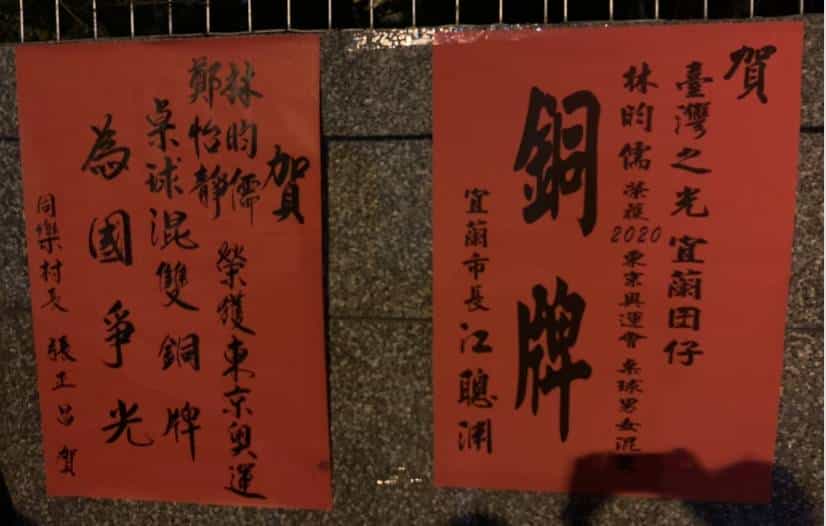 賀
臺灣之光 宜蘭囝仔
林昀儒 榮獲2020東京奧運會 桌球男女混雙
銅牌
宜蘭市長 江聰淵
賀
林昀儒
鄭怡靜
榮獲東京奧運
桌球混雙銅牌
為國爭光
同樂村長 張正呂 賀